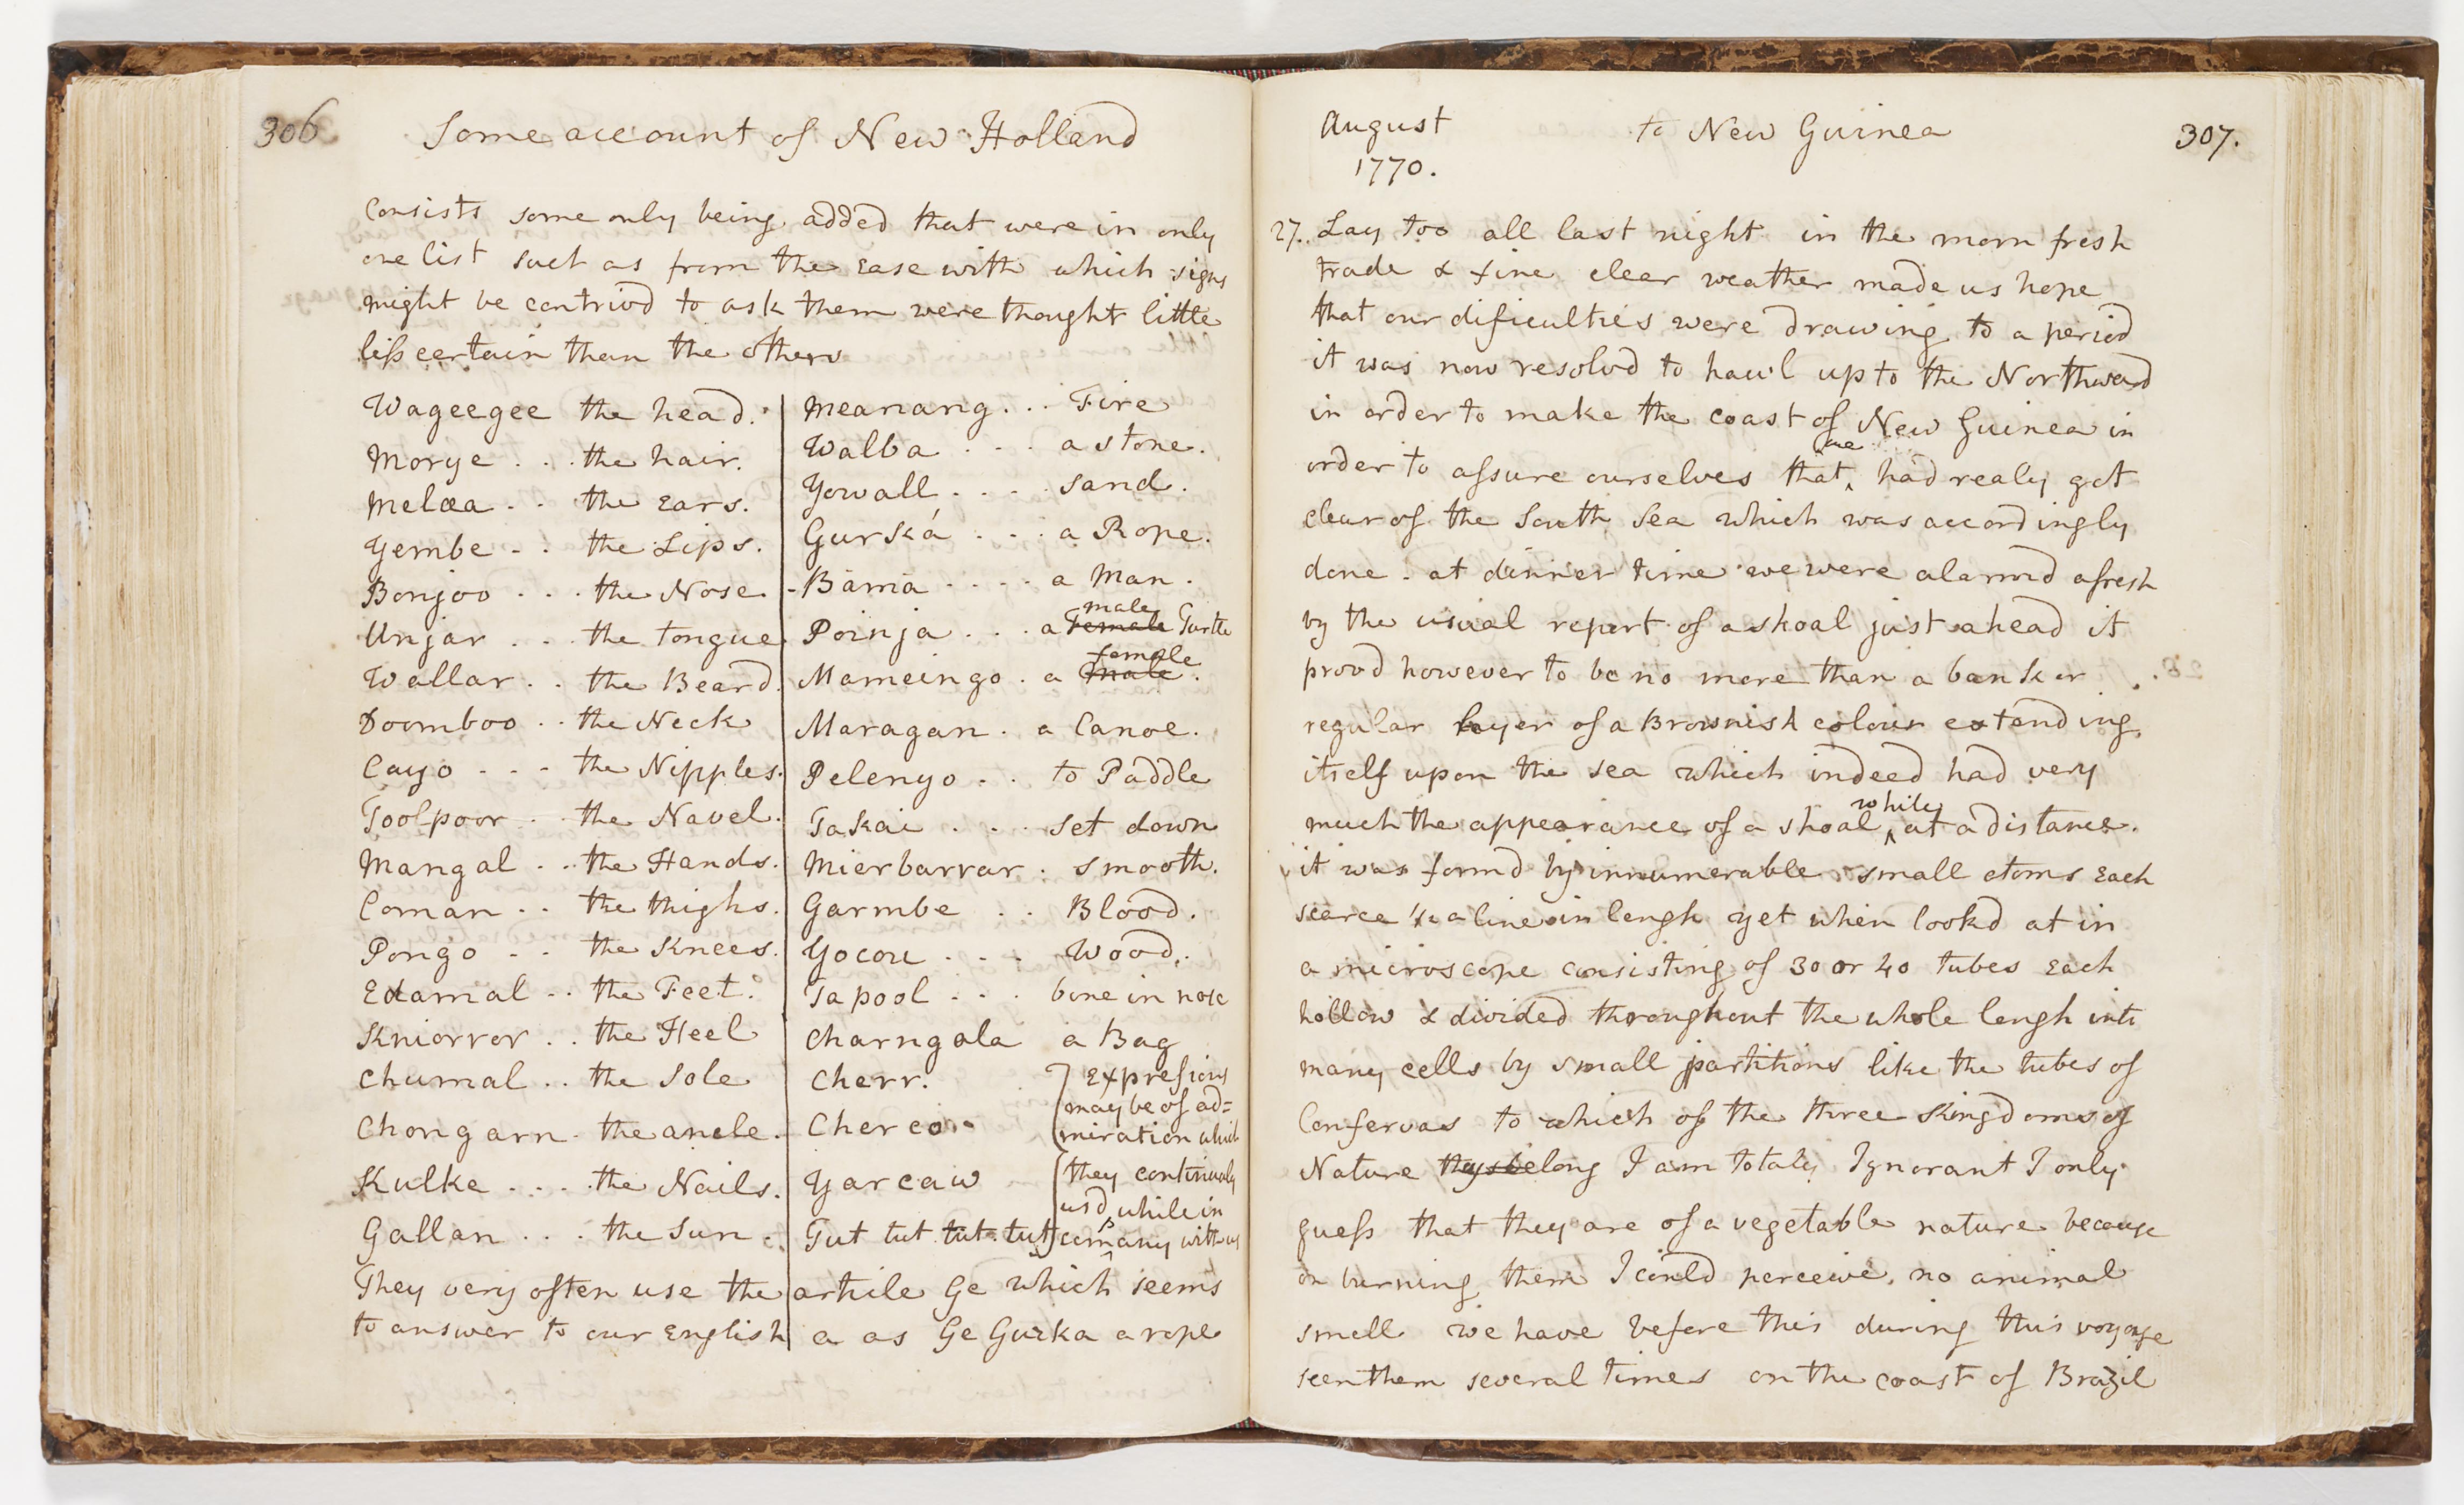 306
Some account of New Holland
Consists some only being added that were in only
one list such as from the Ease with which signs
might be contrivd to ask them were thought little
less certain than the others
Wageegee the head.
Morye . . . the hair.
Melea . . the Ears.
Yembe . . the Lips.
Bonjoo . . . the Nose.
Unjar . . . the tongue.
Wallar . . the Beard.
Doomboo . . the Neck
Cayo . . . the Nipples.
Toolpoor . . the Navel.
Mangal . . the Hands.
Coman . . the thighs.
Pongo . . the Knees.
Edamal . . the Feet.
Kniorror . . the Heel
Chumal . . the Sole
Chongarn . the ancle.
Kulke . . . the Nails.
Gallan . . . the Sun.
Meanang . . . Fire
Walba . . . a stone.
Yowall . . . . sand.
Gurká . . . a Rope.
Bāmā . . . . a Man.
Poinja . . . a Female male Turtle
Mameingo . a male female.
Maragan . a Canoe.
Pelenyo . . to Paddle
Takai . . . set down
Mierbarrar . smooth.
Garmbe . . Blood.
Yocou . . . Wood.
Tapool . . . bone in nose
Charngala a Bag
Cherr. Expressions
may be of ad=
Cherco miration which
Yarcaw they continualy
usd while in
Tut tut tut tut company with us
They very often use the article Ge which seems
to answer to our English a as Ge Gurka a rope
August
1770.
to New Guinea
307.
27. Lay too all last night in the morn fresh
trade & fine clear weather made us hope
that our dificulties were drawing to a period
it was now resolvd to haul up to the Northward
in order to make the coast of New Guinea in
order to assure ourselves that we had realy got
clear of the South Sea which was accordingly
done. at dinner time we were alarmd afresh
by the usual report of a shoal just ahead it
provd however to be no more than a bank or
regular layer of a Brownish colour extending
itself upon the sea which indeed had very
much the appearance of a shoal while at a distance.
it was formd by innumerable small atoms Each
scarce ½ a line in lengh yet when lookd at in
a microscope consisting of 30 or 40 tubes Each
hollow & divided throughout the whole lengh into
many cells by small partitions like the tubes of
Confervas to which of the three Kingdoms of
Nature they belong I am totaly Ignorant I only
guess that they are of a vegetable nature because
on burning them I could perceive no animal
smell we have before this during this voyage
seen them several times on the coast of Brazil